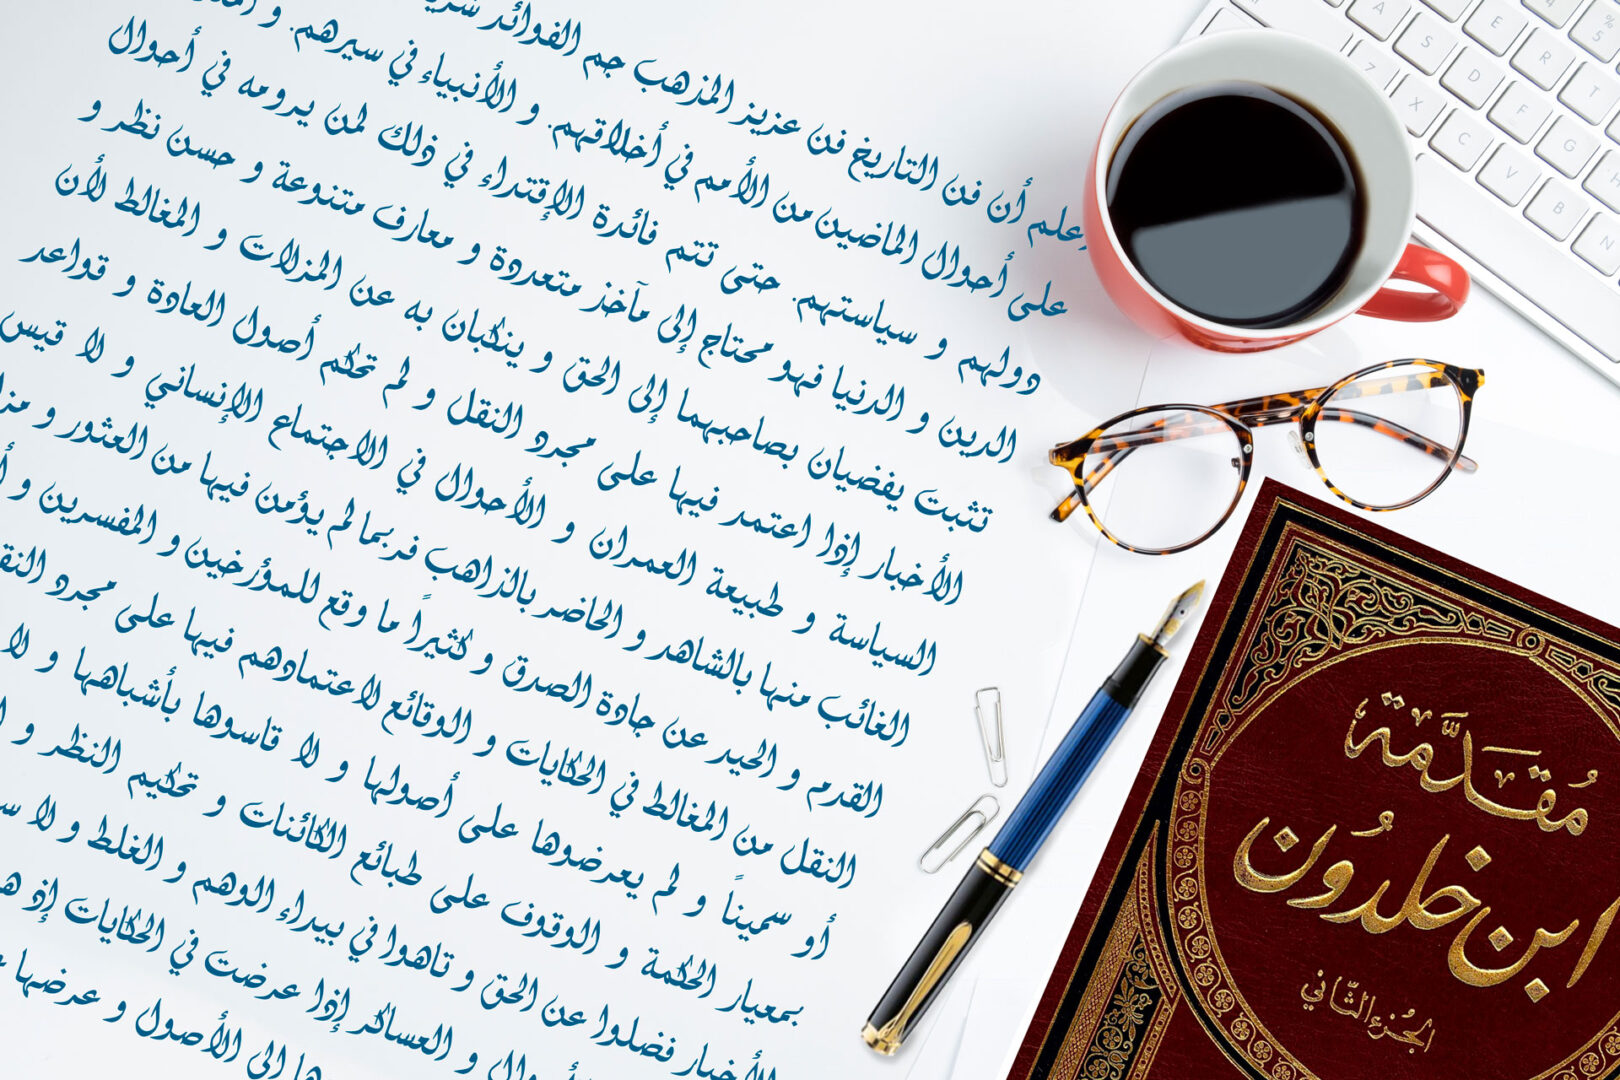 علم أن فن التاريخ فن عزيز المذهب جم الفوائد
على أحوال الماضين من الأمم في أخلاقهم. و الأنبياء في سيرهم. و
دولهم و سياستهم. حتى تتم فائدة الإقتداء في ذلك لمن يرومه في أحوال
الدين و الدنيا فهو محتاج إلى مآخذ متعددة و معارف متنوعة و حسن نظر و
تثبت يفضيان بصاحبهما إلى الحق و ينكبان به عن المزلات و المغالط لأن
الأخبار إذا اعتمد فيها على مجرد النقل و لم تحكم أصول العادة و قواعد
السياسة و طبيعة العمران و الأحوال في الاجتماع الإنساني و لا قيس
الغائب منها بالشاهد و الحاضر بالذاهب فربما لم يؤمن فيها من العثور و
القدم و الحيد عن جادة الصدق و كثيراً ما وقع للمؤرخين و المفسرين و
النقل من المغالط في الحكايات و الوقائع لاعتمادهم فيها على مجرد
أو سميناً و لم يعرضوها على أصولها و لا قاسوها بأشباهها و لا
بمعيار الحكمة و الوقوف على طبائع الكائنات و تحكيم النظر و
فضلوا عن الحق و تاهوا في بيداء الوهم و الغلط و لا
و العساكر إذا عرضت في الحكايات إذ
إلى الأصول و عرضها
مُقَدَّمة
ابن خلدُون
الجُزء الثّاني
A
S
E
R
T
D
F
G
Z
X
C
V
B
N